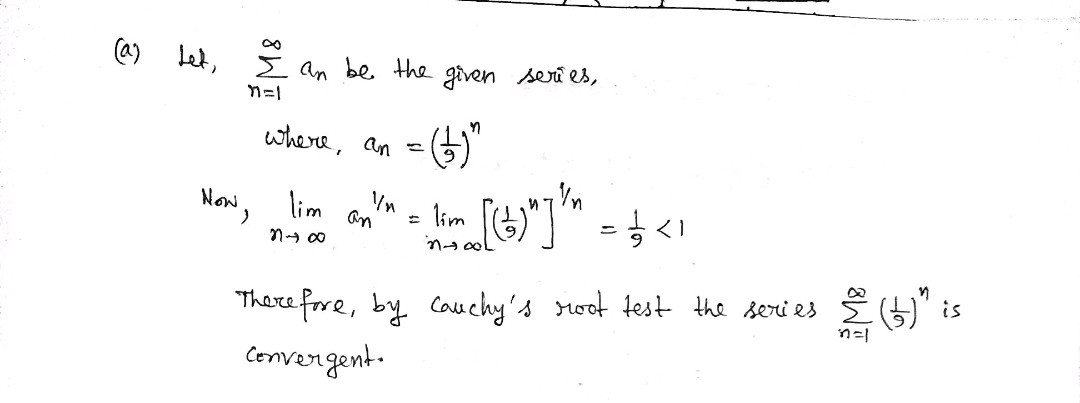 (a) Let, ∞∑n=1 an be the given series,
where, an = (1/9)^n
Now, lim n→∞ an^1/n = lim n→∞ [(1/9)^n]^1/n = 1/9 < 1
Therefore, by Cauchy's root test the series ∞∑n=1 (1/9)^n is
convergent.